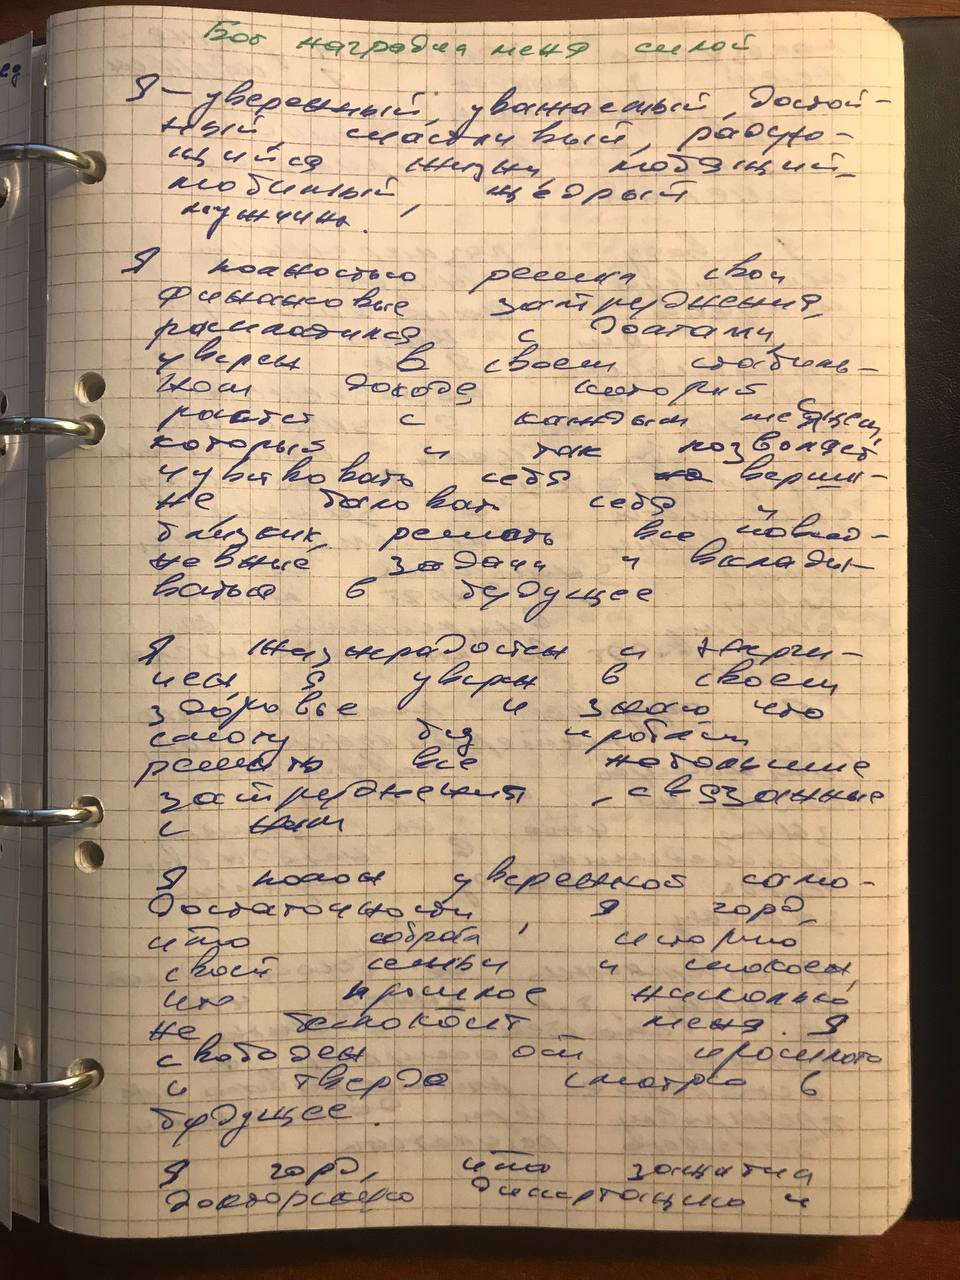 Бог наградил меня силой
Я – уверенный, уважаемый, достой-
ный, счастливый, радую-
щийся жизни, любящий,
любимый, щедрый
мужчина.
Я полностью решил свои
финансовые затруднения,
расплатился с долгами,
уверен в своем стабиль-
ном доходе, который
растет с каждым месяцем,
который и так позволяет
чувствовать себя на верши-
не, баловать себя и
близких, решать все повсед-
невные задачи и вклады-
ваться в будущее
Я жизнерадостен и энерги-
чен, я уверен в своем
здоровье и знаю, что
смогу без проблем
решать все небольшие
затруднения, связанные
с ним
Я полон уверенной само-
достаточности, я горд,
что собрал историю
своей семьи и спокоен,
что прошлое нисколько
не беспокоит меня. Я
свободен от прошлого
и твердо смотрю в
будущее.
Я горд, что защитил
докторскую диссертацию и